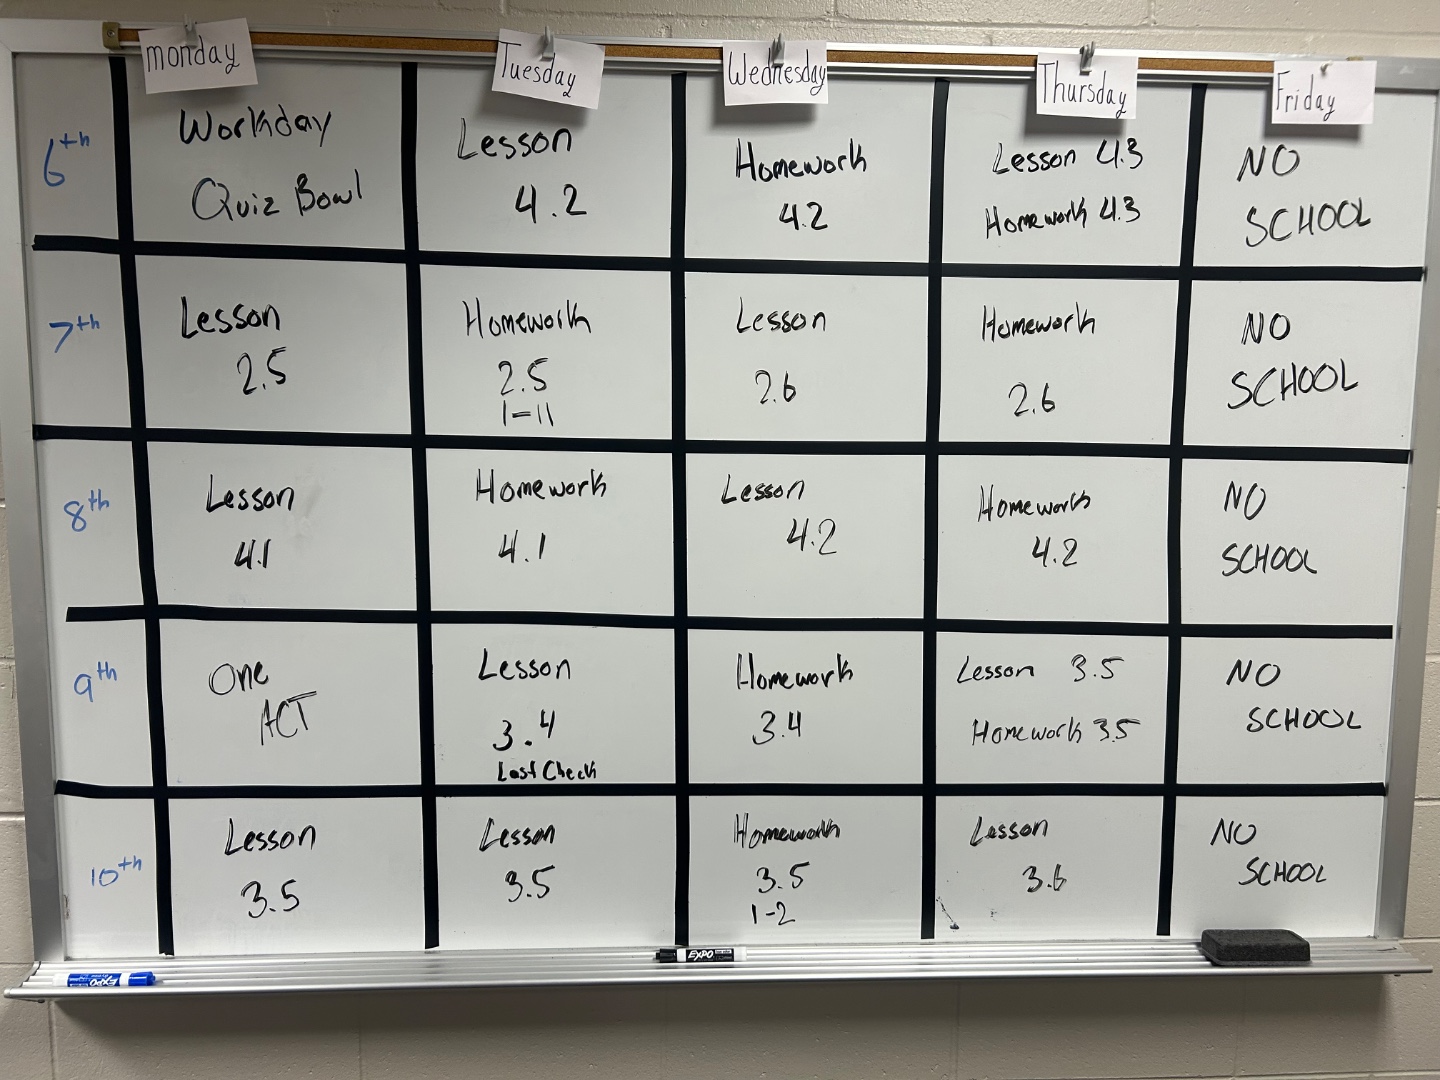 monday
Tuesday
Wednesday
Thursday
Friday
6th
Workday
Quiz Bowl
Lesson
4.2
Homework
4.2
Lesson 4.3
Homework 4.3
NO
SCHOOL
7th
Lesson
2.5
Homework
2.5
1-11
Lesson
2.6
Homework
2.6
NO
SCHOOL
8th
Lesson
4.1
Homework
4.1
Lesson
4.2
Homework
4.2
NO
SCHOOL
9th
One
ACT
Lesson
3.4
Last Check
Homework
3.4
Lesson 3.5
Homework 3.5
NO
SCHOOL
10th
Lesson
3.5
Lesson
3.5
Homework
3.5
1-2
Lesson
3.6
NO
SCHOOL
EXPO
EXPO